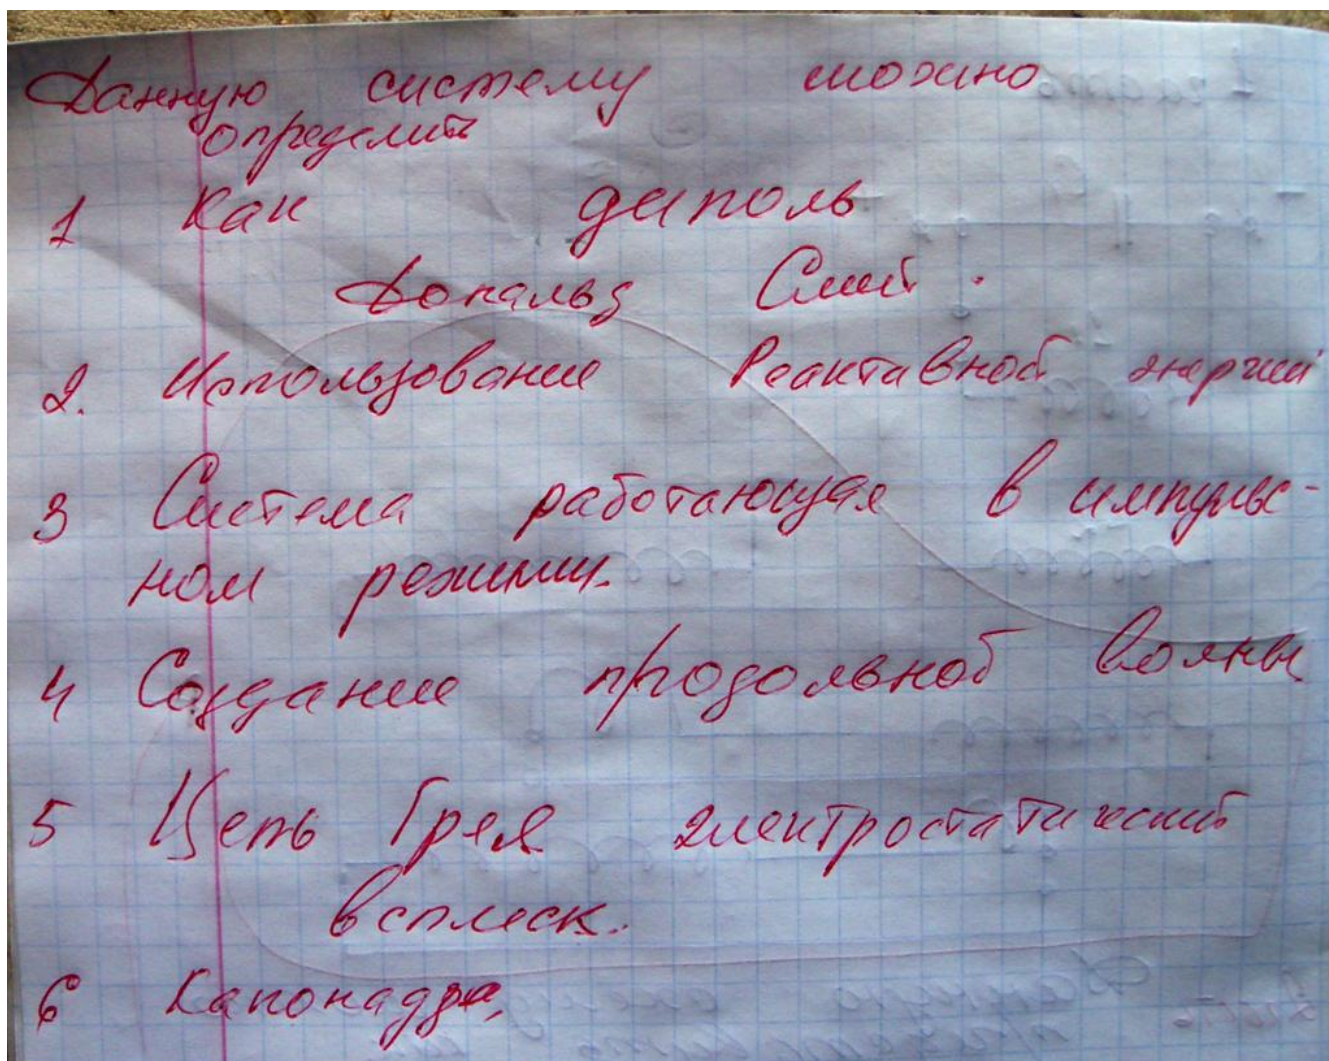 Данную систему можно
определить
1 Как диполь
Дональд Смит.
2. Использование Реактивной энергии
3 Система работающая в импульс-
ном режими.
4 Создание продольной волны
5 Цепь Грея электростатический
всплеск.
6 Капонадзе,